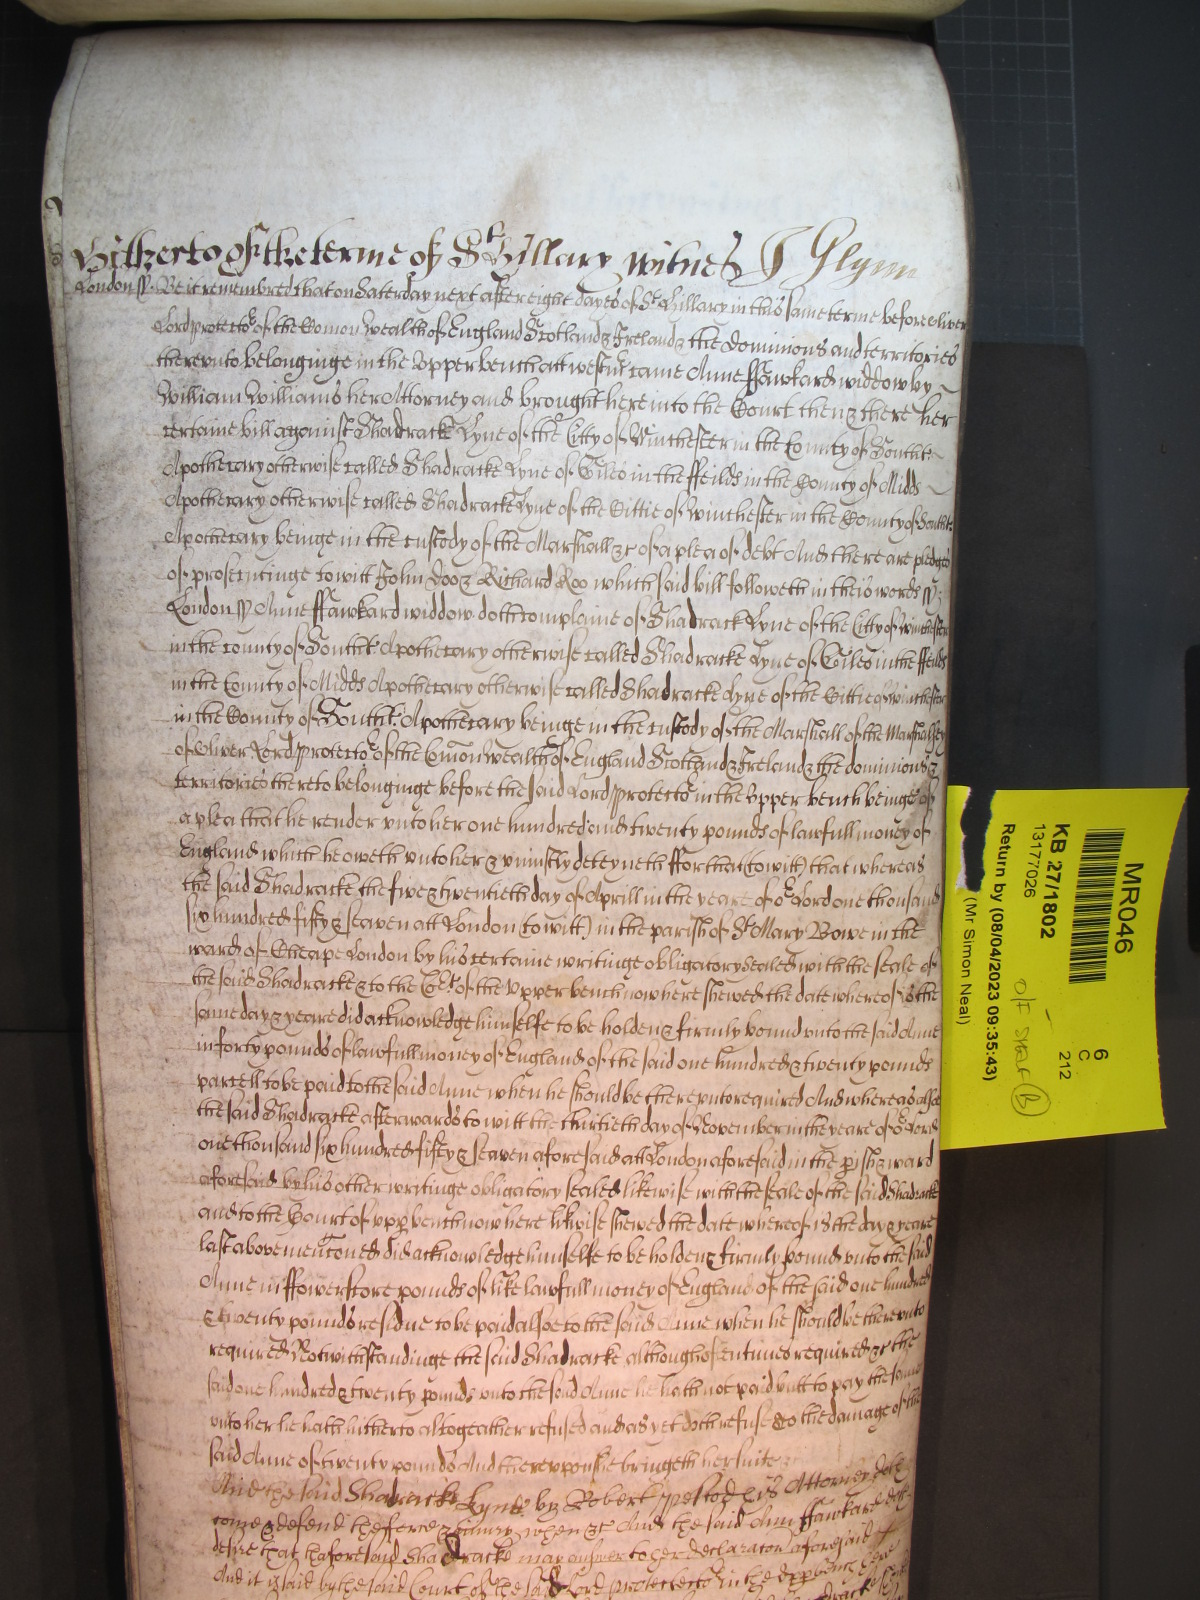 Hitherto of the terme of St Hillary witnes J Glynn
London ss. Be it remembred that on Saterday next after eight dayes of St Hillary in this same terme before Oliver
Lord protector of the Comon wealth of England Scotland & Ireland & the dominions and territories
thereunto belonginge in the Upper bench att westmr came Anne ffawkard widdow by
William Williams her Attorney and brought here into the Court then & there her
certaine bill against Shadrack Lyne of the Citty of Winchester in the County of Southt
Apothecary otherwise called Shadracke Lyne of Giles in the ffeilds in the County of Midds
Apothecary otherwise called Shadracke Lyne of the Cittie of Winchester in the County of Southt
Apothecary beinge in the custody of the Marshall &c of a plea of debt And there are pledges
of prosecutinge to witt John Doo & Richard Roo which said bill followeth in theis words ss:
London ss Anne ffawkard widdow doth complaine of Shadrack Lyne of the Citty of Winchester
in the county of Southt Apothecary otherwise called Shadracke Lyne of Giles in the ffeilds
in the County of Midds Apothecary otherwise called Shadracke Lyne of the Cittie of Winchester
in the County of Southt: Apothecary beinge in the custody of the Marshall of the Marshalsey
of Oliver Lord protector of the Comon wealth of England Scotland & Ireland & the dominions &
territories thereto belonginge before the said Lord protector in the Upper bench beinge of
a plea that he render unto her one hundred and twenty pounds of lawfull money of
England which he oweth unto her & uniustly deteyneth ffor that (to witt) that whereas
the said Shadracke the five & twentieth day of Aprill in the yeare of or Lord one thousand
six hundred fifty & seaven att London (to witt) in the parish of St Mary Bowe in the
ward of Cheape London by his certaine writinge obligatory sealed with the seale of
the said Shadracke & to the Cort of the Upper bench now here shewed the date whereof is the
same day & yeare did acknowledge himselfe to be holden & firmly bound unto the said Anne
in forty pounds of lawfull money of England of the said one hundred & twenty pounds
parcell to be paid to the said Anne when he should be thereunto required And whereas alsoe
the said Shadracke afterwards to witt the thirtieth day of November in the yeare of or Lord
one thousand six hundred fifty & seaven aforesaid att London aforesaid in the pish & ward
aforesaid by his other writinge obligatory sealed likewise with the seale of the said Shadracke
and to the Court of upp bench now here likwise shewed the date whereof is the day & yeare
last above mentoned did acknowledge himselfe to be holden & firmly bound unto the said
Anne in ffowerscore pounds of like lawfull money of England of the said one hundred
& twenty pounds residue to be paid alsoe to the said Anne when he should be thereunto
required Notwithstandinge the said Shadracke although oftentimes required &c the
said one hundred & twenty pounds unto the said Anne he hath not paid butt to pay the same
unto her he hath hitherto altogeather refused and as yet doth refuse to the damage of the
said Anne of twenty pounds And thereuppon she bringeth her suite
And the said Shadracke Lyne by Robert his Attorney doth
come & defend the force & iniury when &c And the said Ann ffawkard doth
desire that thaforesaid Shadracke may answer to her declaraton aforesaid
And it is said by the said Court of the said Lord protector in the upp bench here
MR046
KB 27/1802
13177026
Return by (08/04/2023 09:35:43)
(Mr Simon Neal)
6
C
212
B